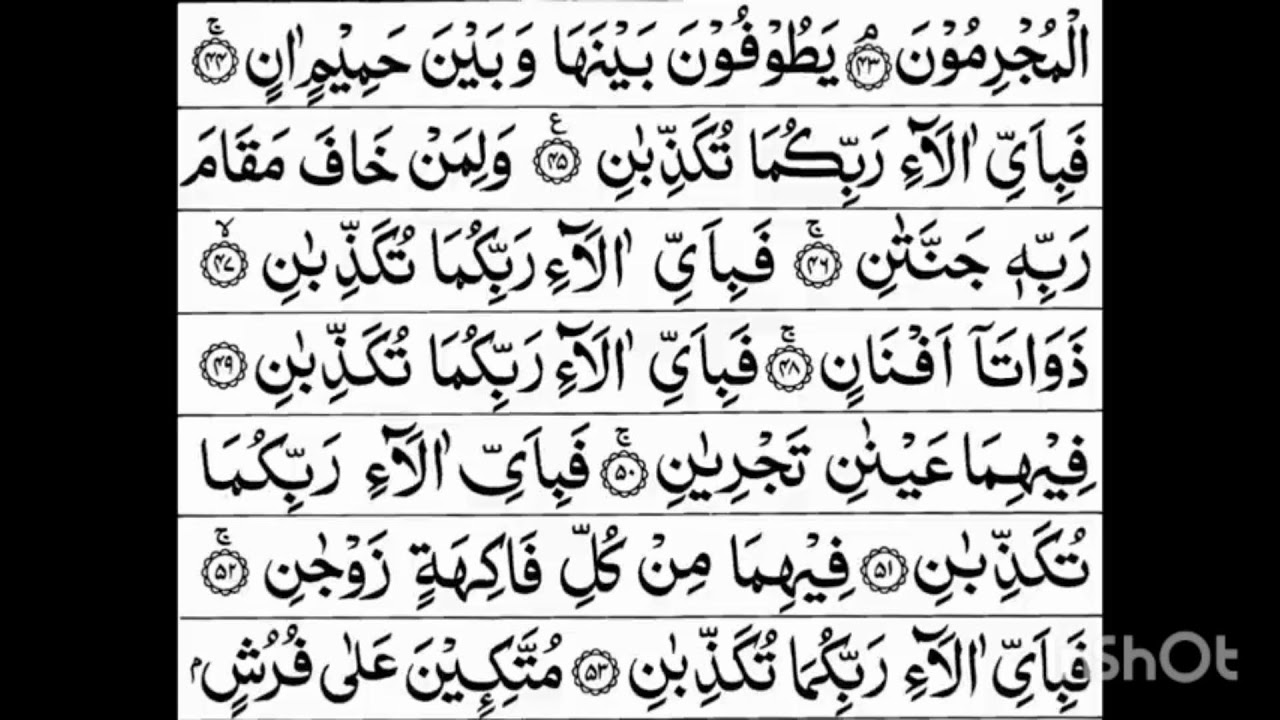 الْمُجْرِمُوْنَ ۘ﴿۴۳﴾ يَطُوْفُوْنَ بَيْنَهَا وَ بَيْنَ حَمِيْمٍ اٰنٍ ۚ﴿۴۴﴾
فَبِاَيِّ اٰلَآءِ رَبِّكُمَا تُكَذِّبٰنِ ﴿۴۵﴾ ع وَلِمَنْ خَافَ مَقَامَ
رَبِّهٖ جَنَّتٰنِ ۚ﴿۴۶﴾ فَبِاَيِّ اٰلَآءِ رَبِّكُمَا تُكَذِّبٰنِ ۙ﴿۴۷﴾
ذَوَاتَاۤ اَفْنَانٍ ۚ﴿۴۸﴾ فَبِاَيِّ اٰلَآءِ رَبِّكُمَا تُكَذِّبٰنِ ﴿۴۹﴾
فِيْهِمَا عَيْنٰنِ تَجْرِيٰنِ ۚ﴿۵۰﴾ فَبِاَيِّ اٰلَآءِ رَبِّكُمَا
تُكَذِّبٰنِ ﴿۵۱﴾ فِيْهِمَا مِنْ كُلِّ فَاكِهَةٍ زَوْجٰنِ ۚ﴿۵۲﴾
فَبِاَيِّ اٰلَآءِ رَبِّكُمَا تُكَذِّبٰنِ ﴿۵۳﴾ مُتَّكِـِٕيْنَ عَلٰى فُرُشٍۭ